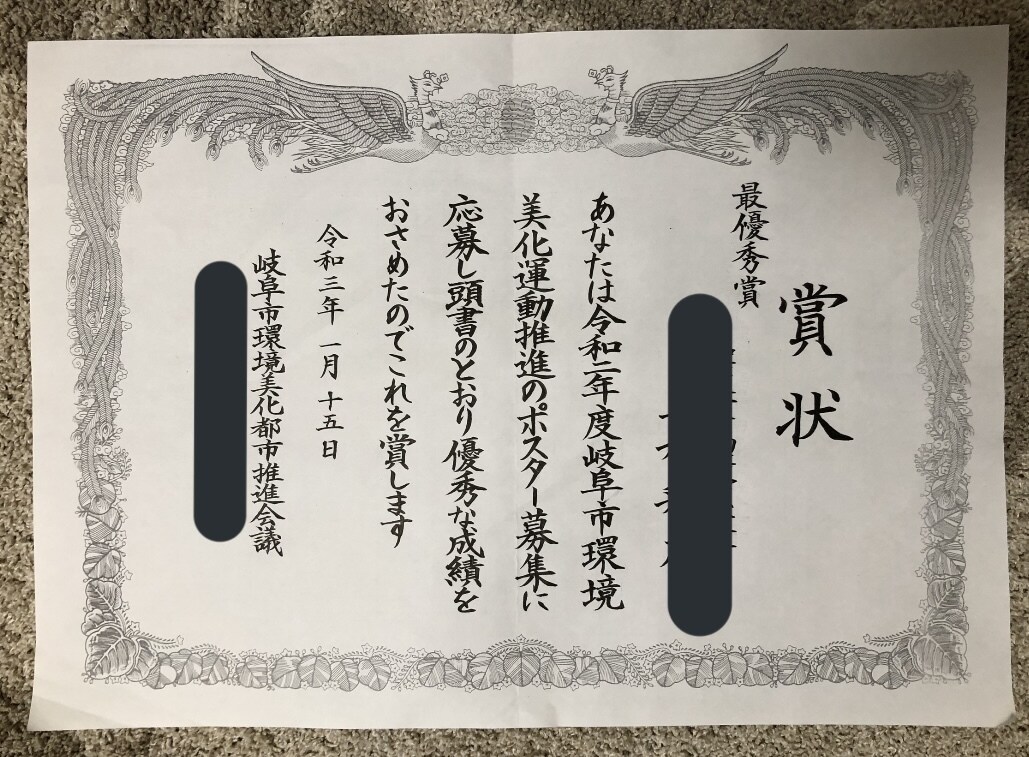 賞状
最優秀賞
あなたは令和二年度岐阜市環境
美化運動推進のポスター募集に
応募し頭書のとおり優秀な成績を
おさめたのでこれを賞します
令和三年一月十五日
岐阜市環境美化都市推進会議